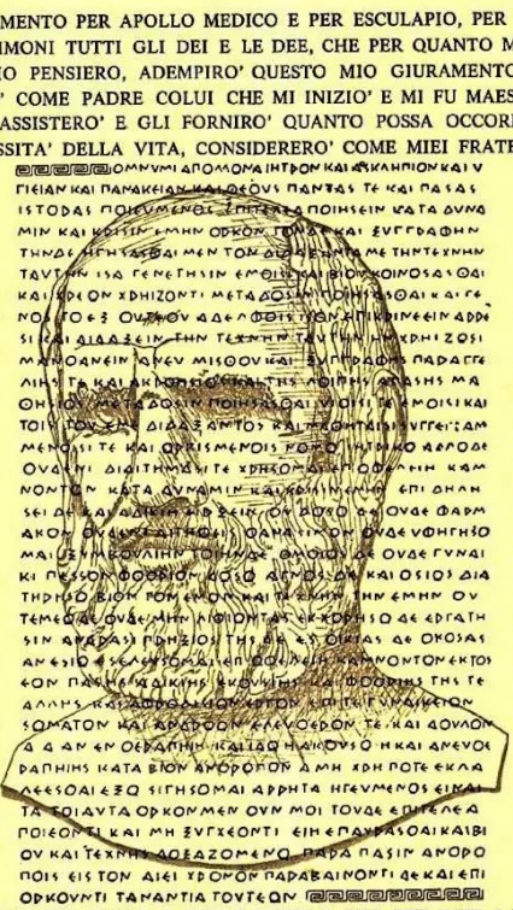 MENTO PER APOLLO MEDICO E PER ESCULAPIO, PER
IMONI TUTTI GLI DEI E LE DEE, CHE PER QUANTO M
IO PENSIERO, ADEMPIRO' QUESTO MIO GIURAMENTO
' COME PADRE COLUI CHE MI INIZIO' E MI FU MAES
ASSISTERO' E GLI FORNIRO' QUANTO POSSA OCCOR
SSITA' DELLA VITA, CONSIDERERO' COME MIEI FRATE
ΟΜΝΥΜΙ ΑΠΟΛΟΝΑ ΙΗΤΡΟΝ ΚΑΙ ΑΣΚΛΗΠΙΟΝ ΚΑΙ Υ
ΓΙΕΙΑΝ ΚΑΙ ΠΑΝΑΚΕΙΑΝ ΚΑΙ ΘΕΟΥΣ ΠΑΝΤΑΣ ΤΕ ΚΑΙ ΠΑΣΑΣ
ΙΣΤΟΡΑΣ ΠΟΙΕΥΜΕΝΟΣ ΕΠΙΤΕΛΕΑ ΠΟΙΗΣΕΙΝ ΚΑΤΑ ΔΥΝΑ
ΜΙΝ ΚΑΙ ΚΡΙΣΙΝ ΕΜΗΝ ΟΡΚΟΝ ΤΟΝΔΕ ΚΑΙ ΞΥΓΓΡΑΦΗΝ
ΤΗΝΔΕ ΗΓΗΣΑΣΘΑΙ ΜΕΝ ΤΟΝ ΔΙΔΑΞΑΝΤΑ ΜΕ ΤΗΝ ΤΕΧΝΗΝ
ΤΑΥΤΗΝ ΙΣΑ ΓΕΝΕΤΗΣΙΝ ΕΜΟΙΣΙ ΚΑΙ ΒΙΟΝ ΚΟΙΝΟΣΑΣΘΑΙ
ΚΑΙ ΧΡΕΟΝ ΧΡΗΙΖΟΝΤΙ ΜΕΤΑΔΟΣΙΝ ΠΟΙΗΣΑΣΘΑΙ ΚΑΙ ΓΕ
ΝΟΣ ΤΟ ΕΞ ΟΥΤΕΟΥ ΑΔΕΛΦΟΙΣ ΙΣΟΝ ΕΠΙΚΡΙΝΕΕΙΝ ΑΡΡΕ
ΣΙ ΚΑΙ ΔΙΔΑΞΕΙΝ ΤΗΝ ΤΕΧΝΗΝ ΤΑΥΤΗΝ ΗΝ ΧΡΗΙΖΟΣΙ
ΜΑΝΘΑΝΕΙΝ ΑΝΕΥ ΜΙΣΘΟΥ ΚΑΙ ΞΥΓΓΡΑΦΗΣ ΠΑΡΑΓΓΕ
ΛΙΗΣ ΤΕ ΚΑΙ ΑΚΡΟΗΣΙΟΣ ΚΑΙ ΤΗΣ ΛΟΙΠΗΣ ΑΠΑΣΗΣ ΜΑ
ΘΗΣΙΟΣ ΜΕΤΑΔΟΣΙΝ ΠΟΙΗΣΑΣΘΑΙ ΥΙΟΙΣΙ ΤΕ ΕΜΟΙΣΙ ΚΑΙ
ΤΟΙΣ ΤΟΥ ΕΜΕ ΔΙΔΑΞΑΝΤΟΣ ΚΑΙ ΜΑΘΗΤΑΙΣΙ
ΜΕΝΟΙΣΙ ΤΕ ΚΑΙ ΟΡΚΙΣΜΕΝΟΙΣ ΝΟΜΟ ΙΗΤΡΙΚΟ ΑΛΛΟ ΔΕ
ΟΥΔΕΝΙ ΔΙΑΙΤΗΜΑΣΙ ΤΕ ΧΡΗΣΟΜΑΙ ΕΠ ΟΦΕΛΕΙΗ ΚΑΜ
ΝΟΝΤΟΝ ΚΑΤΑ ΔΥΝΑΜΙΝ ΚΑΙ ΚΡΙΣΙΝ ΕΜΗΝ ΕΠΙ ΔΗΛΗ
ΣΕΙ ΔΕ ΚΑΙ ΑΔΙΚΙΗ ΕΙΡΞΕΙΝ ΟΥ ΔΟΣΟ ΔΕ ΟΥΔΕ ΦΑΡΜ
ΑΚΟΝ ΟΥΔΕΝΙ ΑΙΤΗΘΕΙΣ ΘΑΝΑΣΙΜΟΝ ΟΥΔΕ ΥΦΗΓΗΣΟ
ΜΑΙ ΞΥΜΒΟΥΛΙΗΝ ΤΟΙΗΝΔΕ ΟΜΟΙΟΣ ΔΕ ΟΥΔΕ ΓΥΝΑΙ
ΚΙ ΠΕΣΣΟΝ ΦΘΟΡΙΟΝ ΔΟΣΟ ΑΓΝΟΣ ΔΕ ΚΑΙ ΟΣΙΟΣ ΔΙΑ
ΤΗΡΗΣΟ ΒΙΟΝ ΤΟΝ ΕΜΟΝ ΚΑΙ ΤΕΧΝΗΝ ΤΗΝ ΕΜΗΝ ΟΥ
ΤΕΜΕΟ ΔΕ ΟΥΔΕ ΜΗΝ ΛΙΘΙΟΝΤΑΣ ΕΚΧΟΡΗΣΟ ΔΕ ΕΡΓΑΤΗ
ΣΙΝ ΑΝΔΡΑΣΙ ΠΡΗΞΙΟΣ ΤΗΣΔΕ ΕΣ ΟΙΚΙΑΣ ΔΕ ΟΚΟΣΑΣ
ΑΝ ΕΣΙΟ ΕΣΕΛΕΥΣΟΜΑΙ ΕΠ ΟΦΕΛΕΙΗ ΚΑΜΝΟΝΤΟΝ ΕΚΤΟΣ
ΕΟΝ ΠΑΣΗΣ ΑΔΙΚΙΗΣ ΕΚΟΥΣΙΗΣ ΚΑΙ ΦΘΟΡΙΗΣ ΤΗΣ ΤΕ
ΑΛΛΗΣ ΚΑΙ ΑΦΡΟΔΙΣΙΟΝ ΕΡΓΟΝ ΕΠΙ ΤΕ ΓΥΝΑΙΚΕΙΟΝ
ΣΟΜΑΤΟΝ ΚΑΙ ΑΝΔΡΟΟΝ ΕΛΕΥΘΕΡΟΝ ΤΕ ΚΑΙ ΔΟΥΛΟΝ
Α Δ ΑΝ ΕΝ ΘΕΡΑΠΗΙΗ Η ΙΔΟ Η ΑΚΟΥΣΟ Η ΚΑΙ ΑΝΕΥ ΘΕ
ΡΑΠΗΙΗΣ ΚΑΤΑ ΒΙΟΝ ΑΝΘΡΟΠΟΝ Α ΜΗ ΧΡΗ ΠΟΤΕ ΕΚΛΑ
ΛΕΕΣΘΑΙ ΕΞΟ ΣΙΓΗΣΟΜΑΙ ΑΡΡΗΤΑ ΗΓΕΥΜΕΝΟΣ ΕΙΝΑΙ
ΤΑ ΤΟΙΑΥΤΑ ΟΡΚΟΝ ΜΕΝ ΟΥΝ ΜΟΙ ΤΟΝΔΕ ΕΠΙΤΕΛΕΑ
ΠΟΙΕΟΝΤΙ ΚΑΙ ΜΗ ΞΥΓΧΕΟΝΤΙ ΕΙΗ ΕΠΑΥΡΑΣΘΑΙ ΚΑΙ ΒΙ
ΟΥ ΚΑΙ ΤΕΧΝΗΣ ΔΟΞΑΖΟΜΕΝΟ ΠΑΡΑ ΠΑΣΙΝ ΑΝΘΡΟ
ΠΟΙΣ ΕΙΣ ΤΟΝ ΑΙΕΙ ΧΡΟΝΟΝ ΠΑΡΑΒΑΙΝΟΝΤΙ ΔΕ ΚΑΙ ΕΠΙ
ΟΡΚΟΥΝΤΙ ΤΑΝΑΝΤΙΑ ΤΟΥΤΕΟΝ